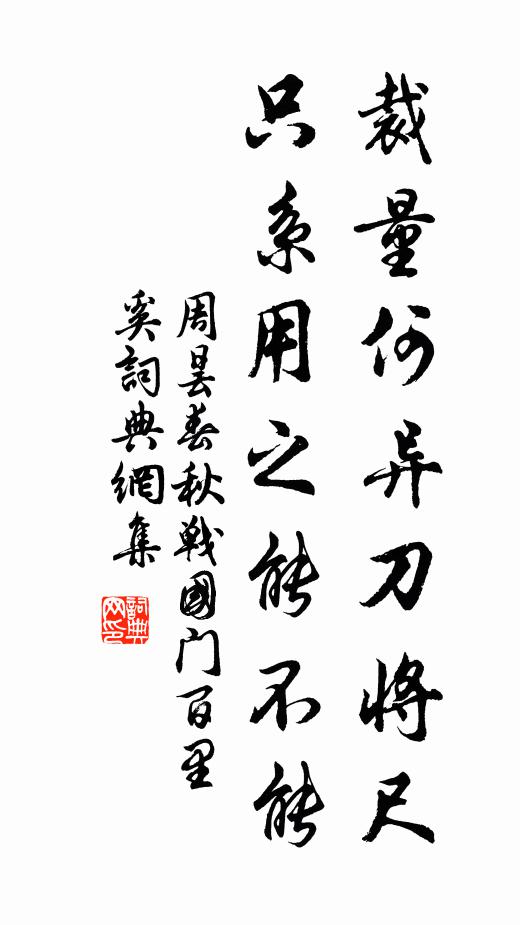 裁量何异刀将尺
只系用之能不能
周昙春秋戰國门百里
奚詞典網集
詞典网印